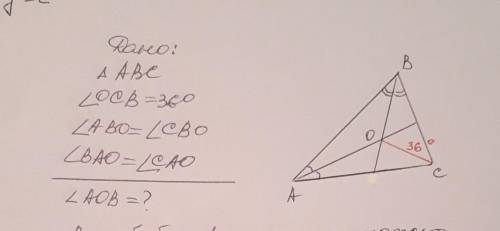 Дано:
△ ABC
∠OCB=36°
∠ABO=∠CBO
∠BAO=∠CAO
∠AOB=?
B
O
36°
C
A